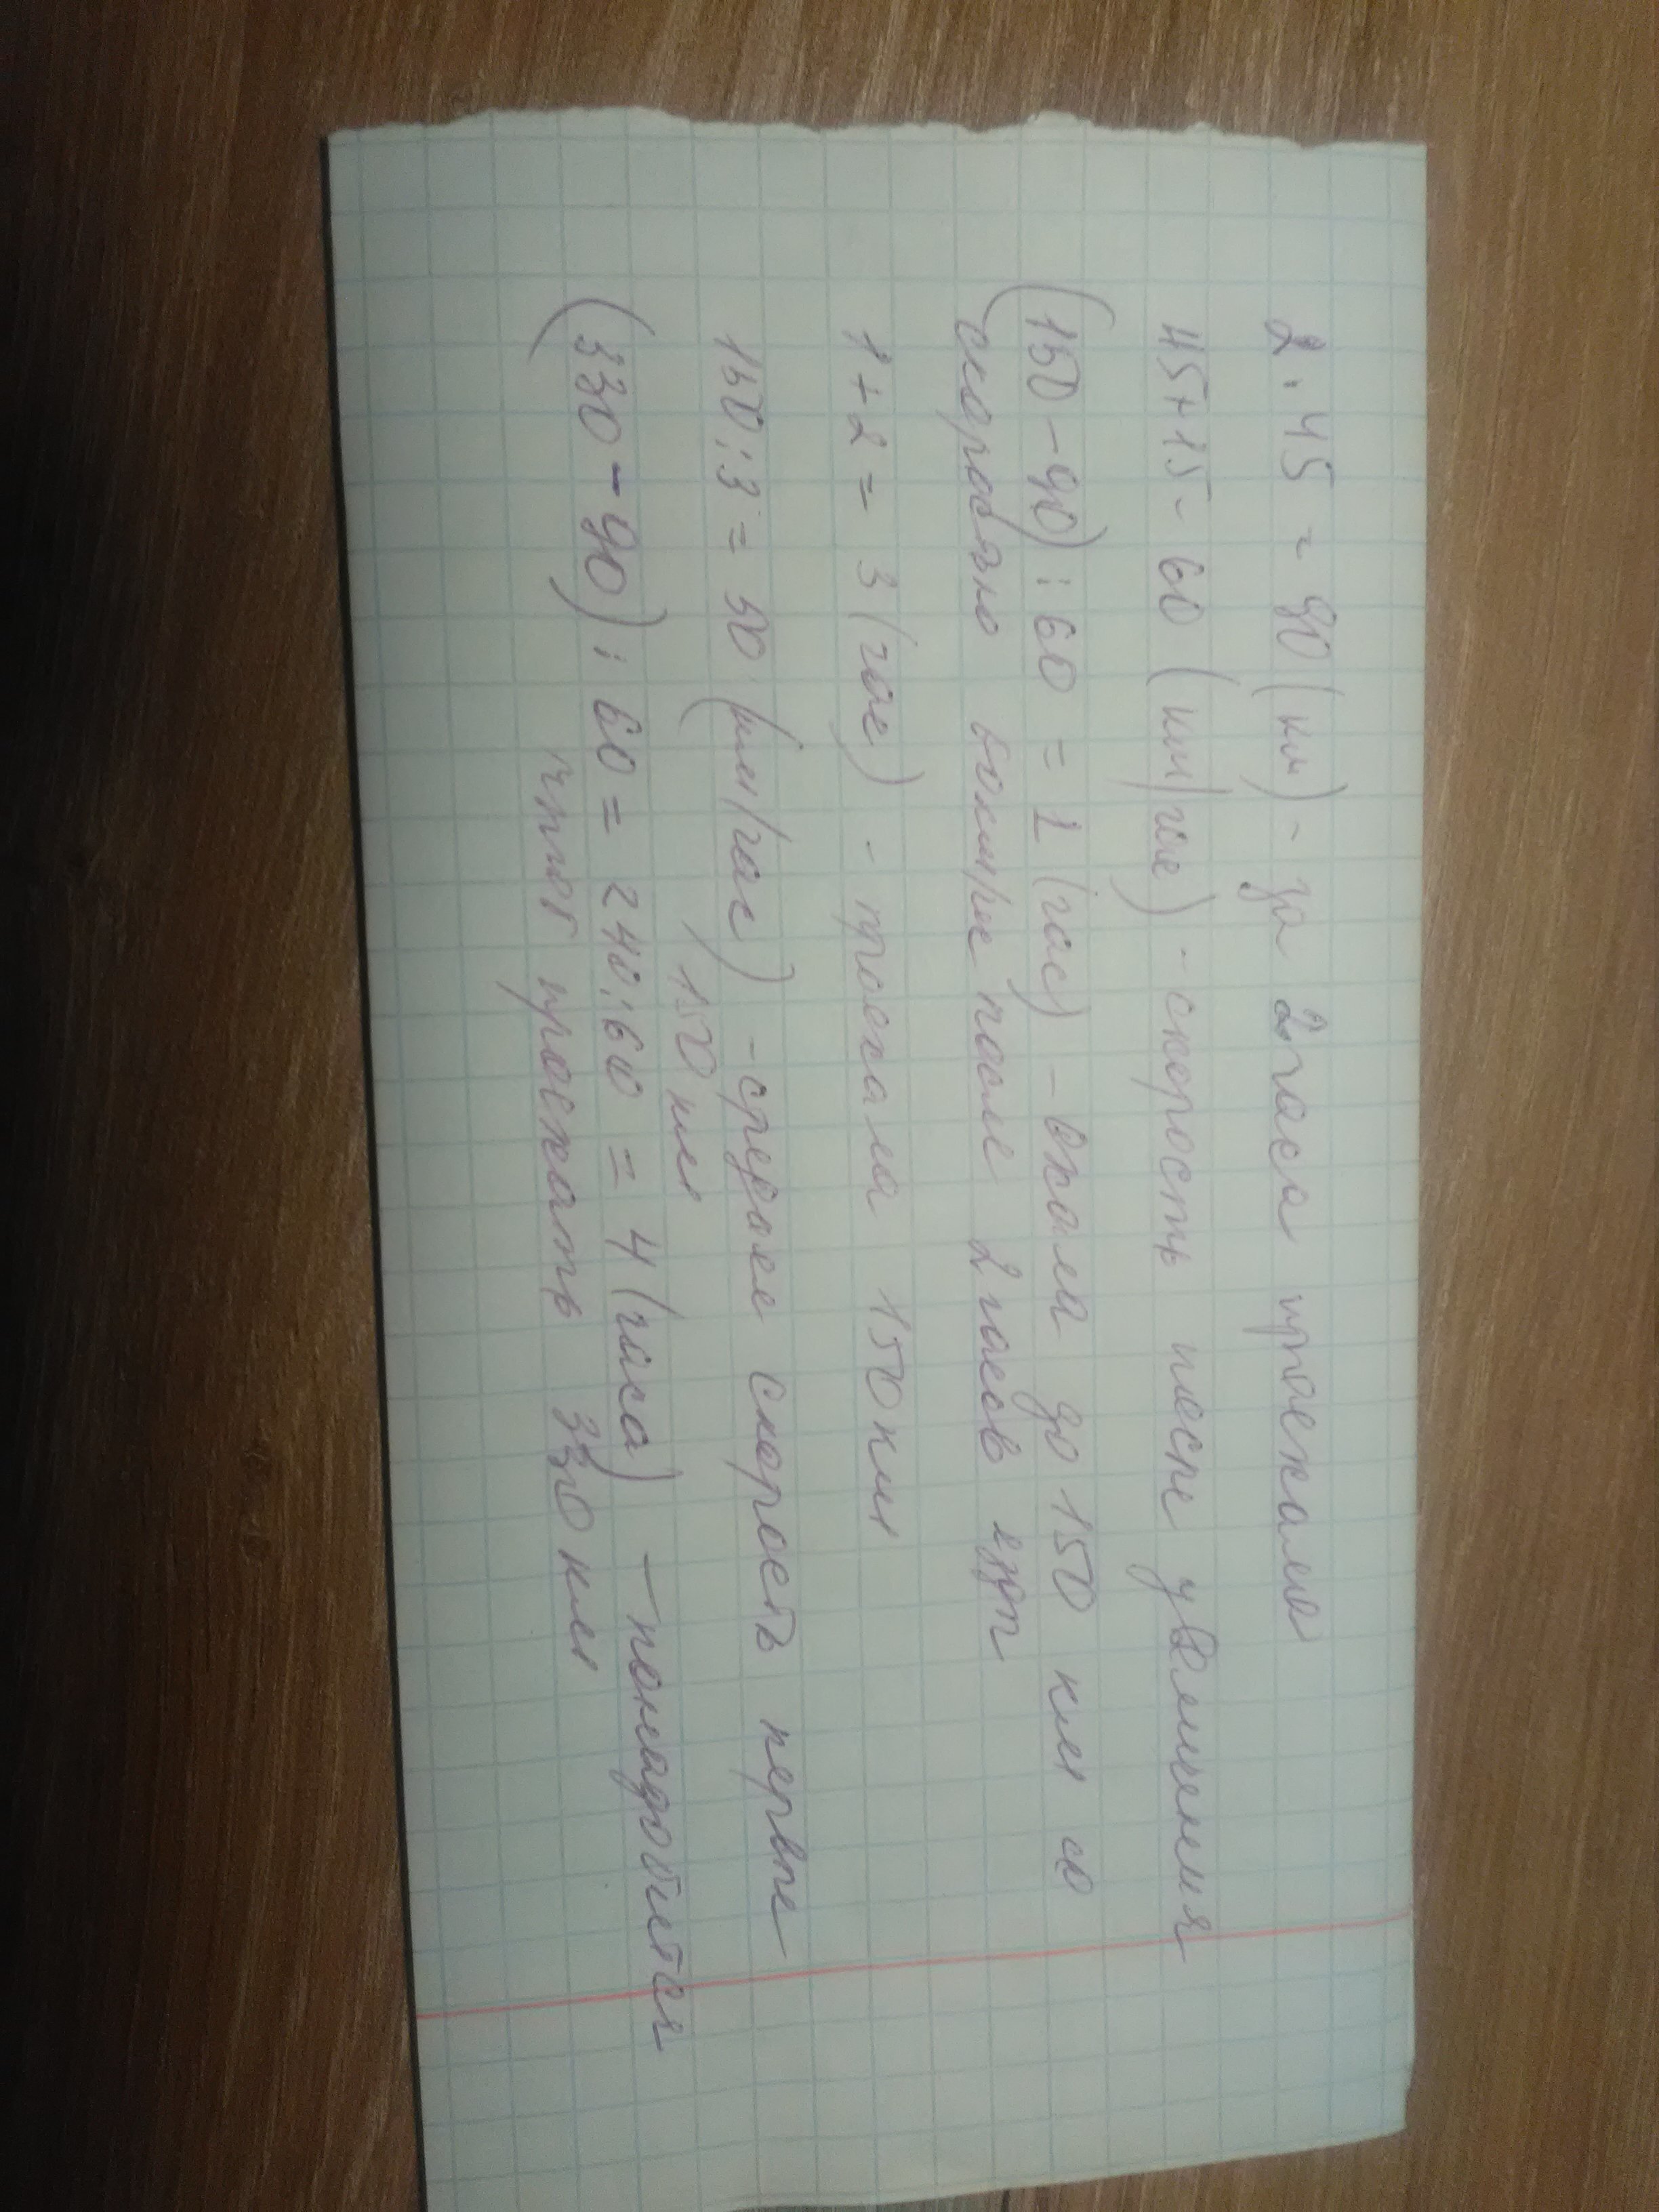 2 · 45 = 90 (км) - за 2 часа проехала
45+15 - 60 (км/час) - скорость после увеличения
(150 - 90) : 60 = 1 (час) - ехала до 150 км со
скоростью больше после 2 часов езды
1 + 2 = 3 (час) - проехала 150 км
150 : 3 = 50 (км/час) - среднее скорость первые
150 км
(330 - 90) : 60 = 240 : 60 = 4 (часа) - понадобится
чтоб проехать 330 км